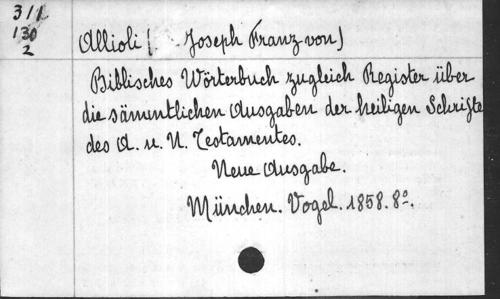 311
130
2
Allioli (Joseph Franz von)
Biblisches Wörterbuch zugleich Register über
die sämmtlichen Ausgaben der heiligen Schrifte
des A. u. N. Testamentes.
Neue Ausgabe.
München. Vogel. 1858. 8º.